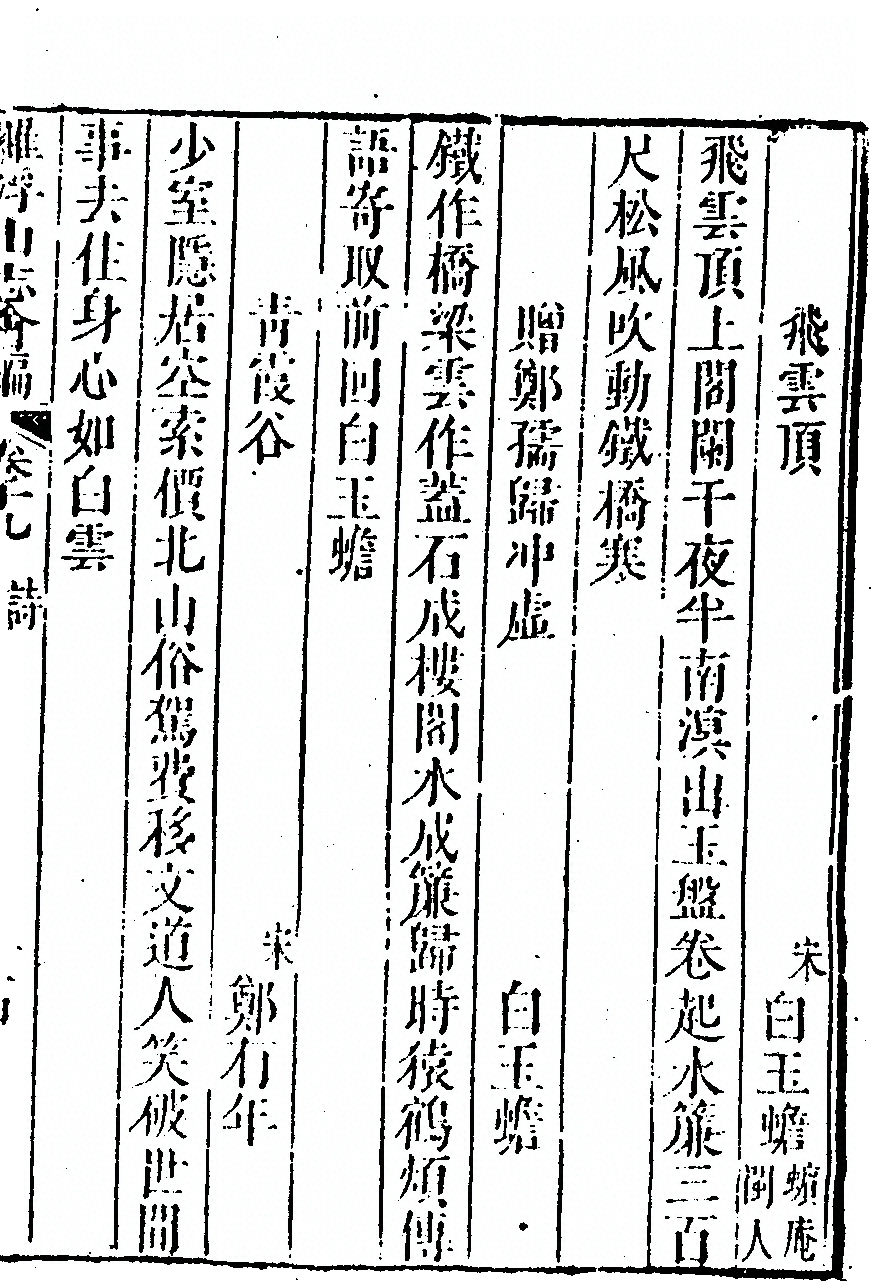 飛雲頂
宋白玉蟾蠙庵閩人
飛雲頂上閣闌干夜半南溟出玉盤卷起水簾三百
尺松風吹動鐵橋寒
贈鄭孺歸冲虛
白玉蟾
鐵作橋梁雲作蓋石成樓閣水成簾歸時猿鶴煩傳
語寄取前回白玉蟾
青霞谷
宋鄭有年
少室隱居空索價北山俗駕費移文道人笑破世間
事去住身心如白雲
羅浮山志會編 卷十九 詩